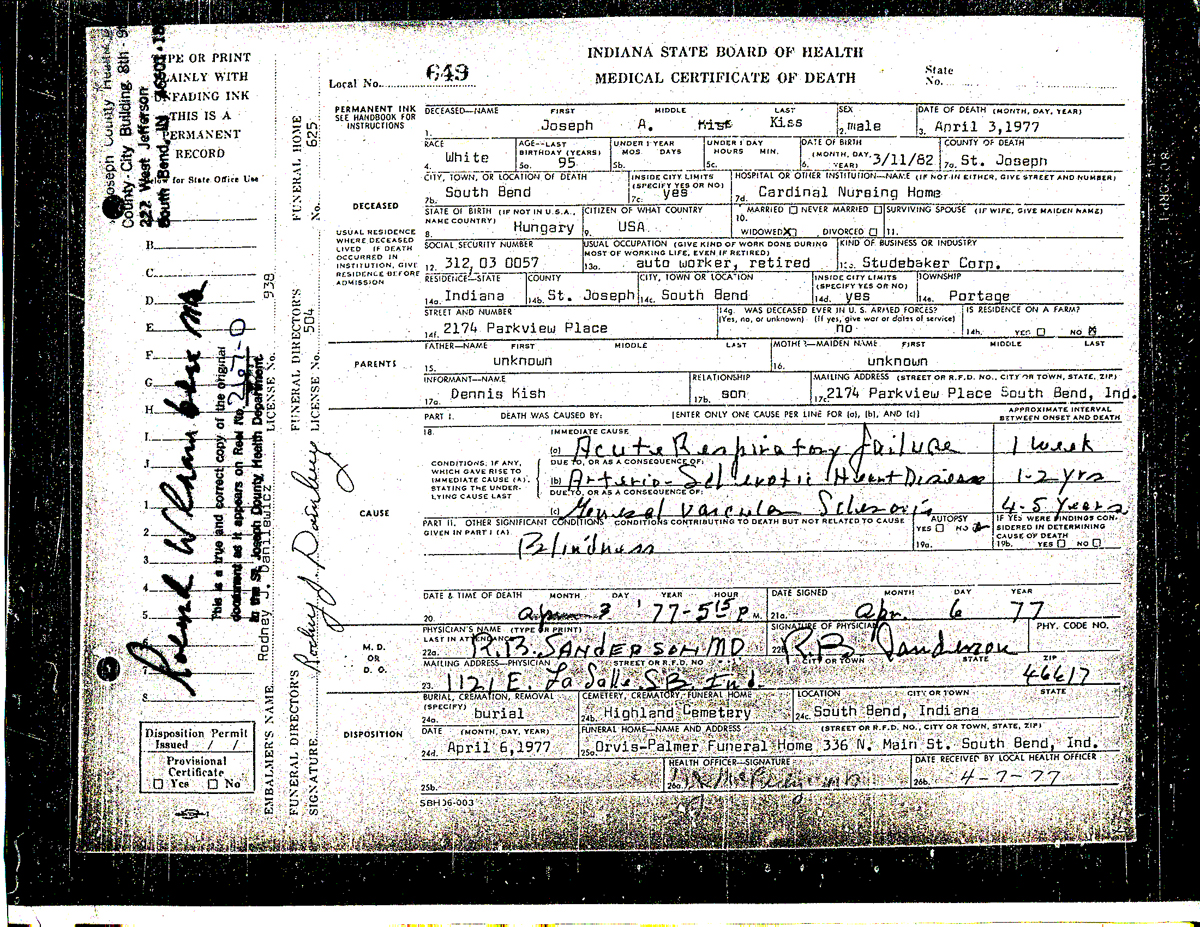 INDIANA STATE BOARD OF HEALTH
MEDICAL CERTIFICATE OF DEATH
Local No. 649
State No.
TYPE OR PRINT
PLAINLY WITH
UNFADING INK
THIS IS A
PERMANENT
RECORD
Below for State Office Use
PERMANENT INK
SEE HANDBOOK FOR
INSTRUCTIONS
DECEASED—NAME FIRST MIDDLE LAST
1. Joseph A. Kiss Kiss
SEX
2. male
DATE OF DEATH (MONTH, DAY, YEAR)
3. April 3,1977
RACE
4. White
AGE—LAST BIRTHDAY (YEARS)
5a. 95
UNDER 1 YEAR
MOS. DAYS
5b.
UNDER 1 DAY
HOURS MIN.
5c.
DATE OF BIRTH (MONTH, DAY, YEAR)
6. 3/11/82
COUNTY OF DEATH
7a. St. Joseph
DECEASED
CITY, TOWN, OR LOCATION OF DEATH
7b. South Bend
INSIDE CITY LIMITS (SPECIFY YES OR NO)
7c. yes
HOSPITAL OR OTHER INSTITUTION—NAME (IF NOT IN EITHER, GIVE STREET AND NUMBER)
7d. Cardinal Nursing Home
USUAL RESIDENCE
WHERE DECEASED
LIVED IF DEATH
OCCURRED IN
INSTITUTION, GIVE
RESIDENCE BEFORE
ADMISSION
STATE OF BIRTH (IF NOT IN U.S.A., NAME COUNTRY)
8. Hungary
CITIZEN OF WHAT COUNTRY
9. USA
10. MARRIED NEVER MARRIED
WIDOWED X DIVORCED
SURVIVING SPOUSE (IF WIFE, GIVE MAIDEN NAME)
11.
SOCIAL SECURITY NUMBER
12. 312 03 0057
USUAL OCCUPATION (GIVE KIND OF WORK DONE DURING MOST OF WORKING LIFE, EVEN IF RETIRED)
13a. auto worker, retired
KIND OF BUSINESS OR INDUSTRY
Studebaker Corp.
RESIDENCE—STATE
14a. Indiana
COUNTY
14b. St. Joseph
CITY, TOWN OR LOCATION
14c. South Bend
INSIDE CITY LIMITS (SPECIFY YES OR NO)
14d. yes
TOWNSHIP
14e. Portage
STREET AND NUMBER
14f. 2174 Parkview Place
14g. WAS DECEASED EVER IN U. S. ARMED FORCES?
(Yes, no, or unknown) (If yes, give war or dates of service)
no
IS RESIDENCE ON A FARM?
14h. YES NO X
PARENTS
FATHER—NAME FIRST MIDDLE LAST
15. unknown
MOTHER—MAIDEN NAME FIRST MIDDLE LAST
16. unknown
INFORMANT—NAME
17a. Dennis Kish
RELATIONSHIP
17b. son
MAILING ADDRESS (STREET OR R.F.D. NO., CITY OR TOWN, STATE, ZIP)
17c. 2174 Parkview Place South Bend, Ind.
PART I. DEATH WAS CAUSED BY: [ENTER ONLY ONE CAUSE PER LINE FOR (a), (b), AND (c)]
APPROXIMATE INTERVAL BETWEEN ONSET AND DEATH
18.
IMMEDIATE CAUSE
(a) Acute Respiratory Failure 1 week
CONDITIONS, IF ANY,
WHICH GAVE RISE TO
IMMEDIATE CAUSE (A),
STATING THE UNDER-
LYING CAUSE LAST
DUE TO, OR AS A CONSEQUENCE OF:
(b) Arterio-Sclerotic Heart Disease 1-2 yrs
DUE TO, OR AS A CONSEQUENCE OF:
(c) General Vascular Sclerosis 4-5 years
CAUSE
PART II. OTHER SIGNIFICANT CONDITIONS CONDITIONS CONTRIBUTING TO DEATH BUT NOT RELATED TO CAUSE GIVEN IN PART I (A)
Blindness
AUTOPSY
YES NO
19a.
IF YES WERE FINDINGS CONSIDERED IN DETERMINING CAUSE OF DEATH
19b. YES NO
DATE & TIME OF DEATH MONTH DAY YEAR HOUR
20. 3 '77-5 15 P M.
DATE SIGNED MONTH DAY YEAR
21a. Apr. 6 77
M. D.
OR
D. O.
PHYSICIAN'S NAME (TYPE OR PRINT)
LAST IN ATTENDANCE
22a. R.B. SANDERSON MD
SIGNATURE OF PHYSICIAN
22b. R.B Sanderson
PHY. CODE NO.
MAILING ADDRESS—PHYSICIAN STREET OR R.F.D. NO. CITY OR TOWN STATE ZIP
23. 1121 E. La Salle S.B Ind. 46617
DISPOSITION
BURIAL, CREMATION, REMOVAL (SPECIFY)
24a. burial
CEMETERY, CREMATORY, FUNERAL HOME
24b. Highland Cemetery
LOCATION CITY OR TOWN STATE
24c. South Bend, Indiana
DATE (MONTH, DAY, YEAR)
24d. April 6,1977
FUNERAL HOME—NAME AND ADDRESS (STREET OR R.F.D. NO., CITY OR TOWN, STATE, ZIP)
25a. Orvis-Palmer Funeral Home 336 N. Main St. South Bend, Ind.
25b.
HEALTH OFFICER—SIGNATURE
26a.
DATE RECEIVED BY LOCAL HEALTH OFFICER
26b. 4-7-77
SBH 06-003
B.
C.
D.
E.
F.
G.
H.
I.
J.
1
2
3
4
5
6
7
8
Disposition Permit
Issued / /
Provisional
Certificate
Yes No
St. Joseph County Health
County-City Building, 8th
227 West Jefferson
South Bend, IN 46601
This is a true and correct copy of the original
document as it appears on Reel No.
in the St. Joseph County Health Department.
EMBALMER'S NAME Rodney J. Danilewicz LICENSE No. 938
FUNERAL DIRECTOR'S SIGNATURE
FUNERAL DIRECTOR'S LICENSE No. 504
FUNERAL HOME No. 625